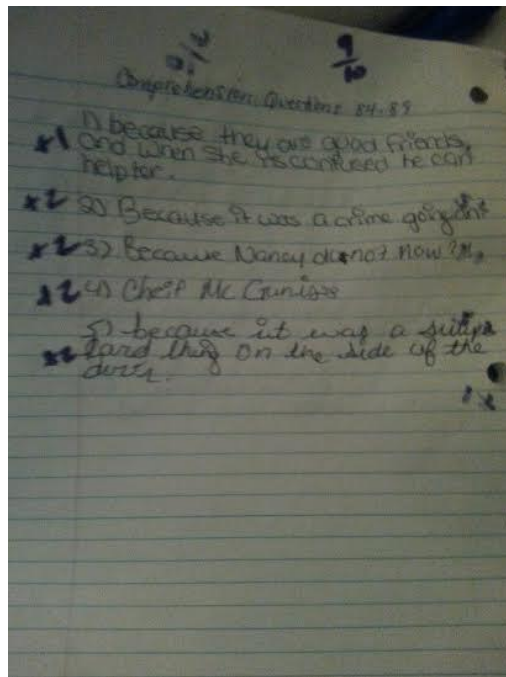 9/10
Comprehension Questions 84-89
+1 1) because they are good friends,
and when she is confused he can
help her.
+2 2) Because it was a crime going on
+2 3) Because Nancy do not now
+2 4) Cheif Mc Gunisse
5) because it was a
+2 thing on the side of the